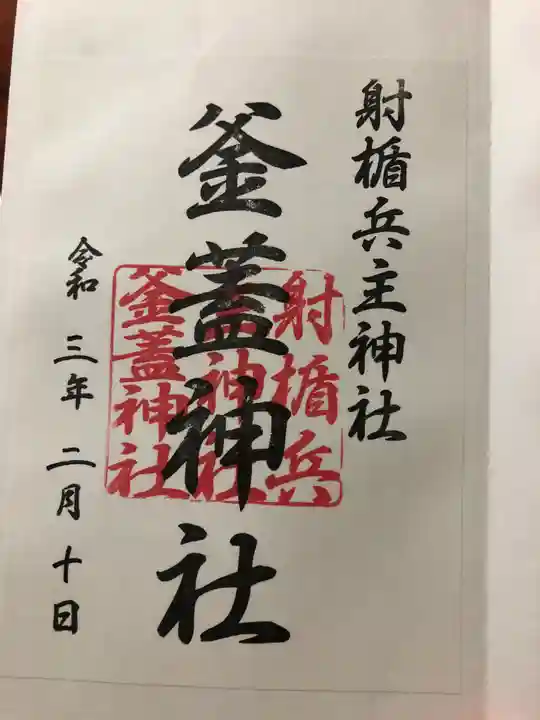 射楯兵主神社
釜蓋神社
射楯兵
主神社
釜蓋神社
令和 三年 二月 十日